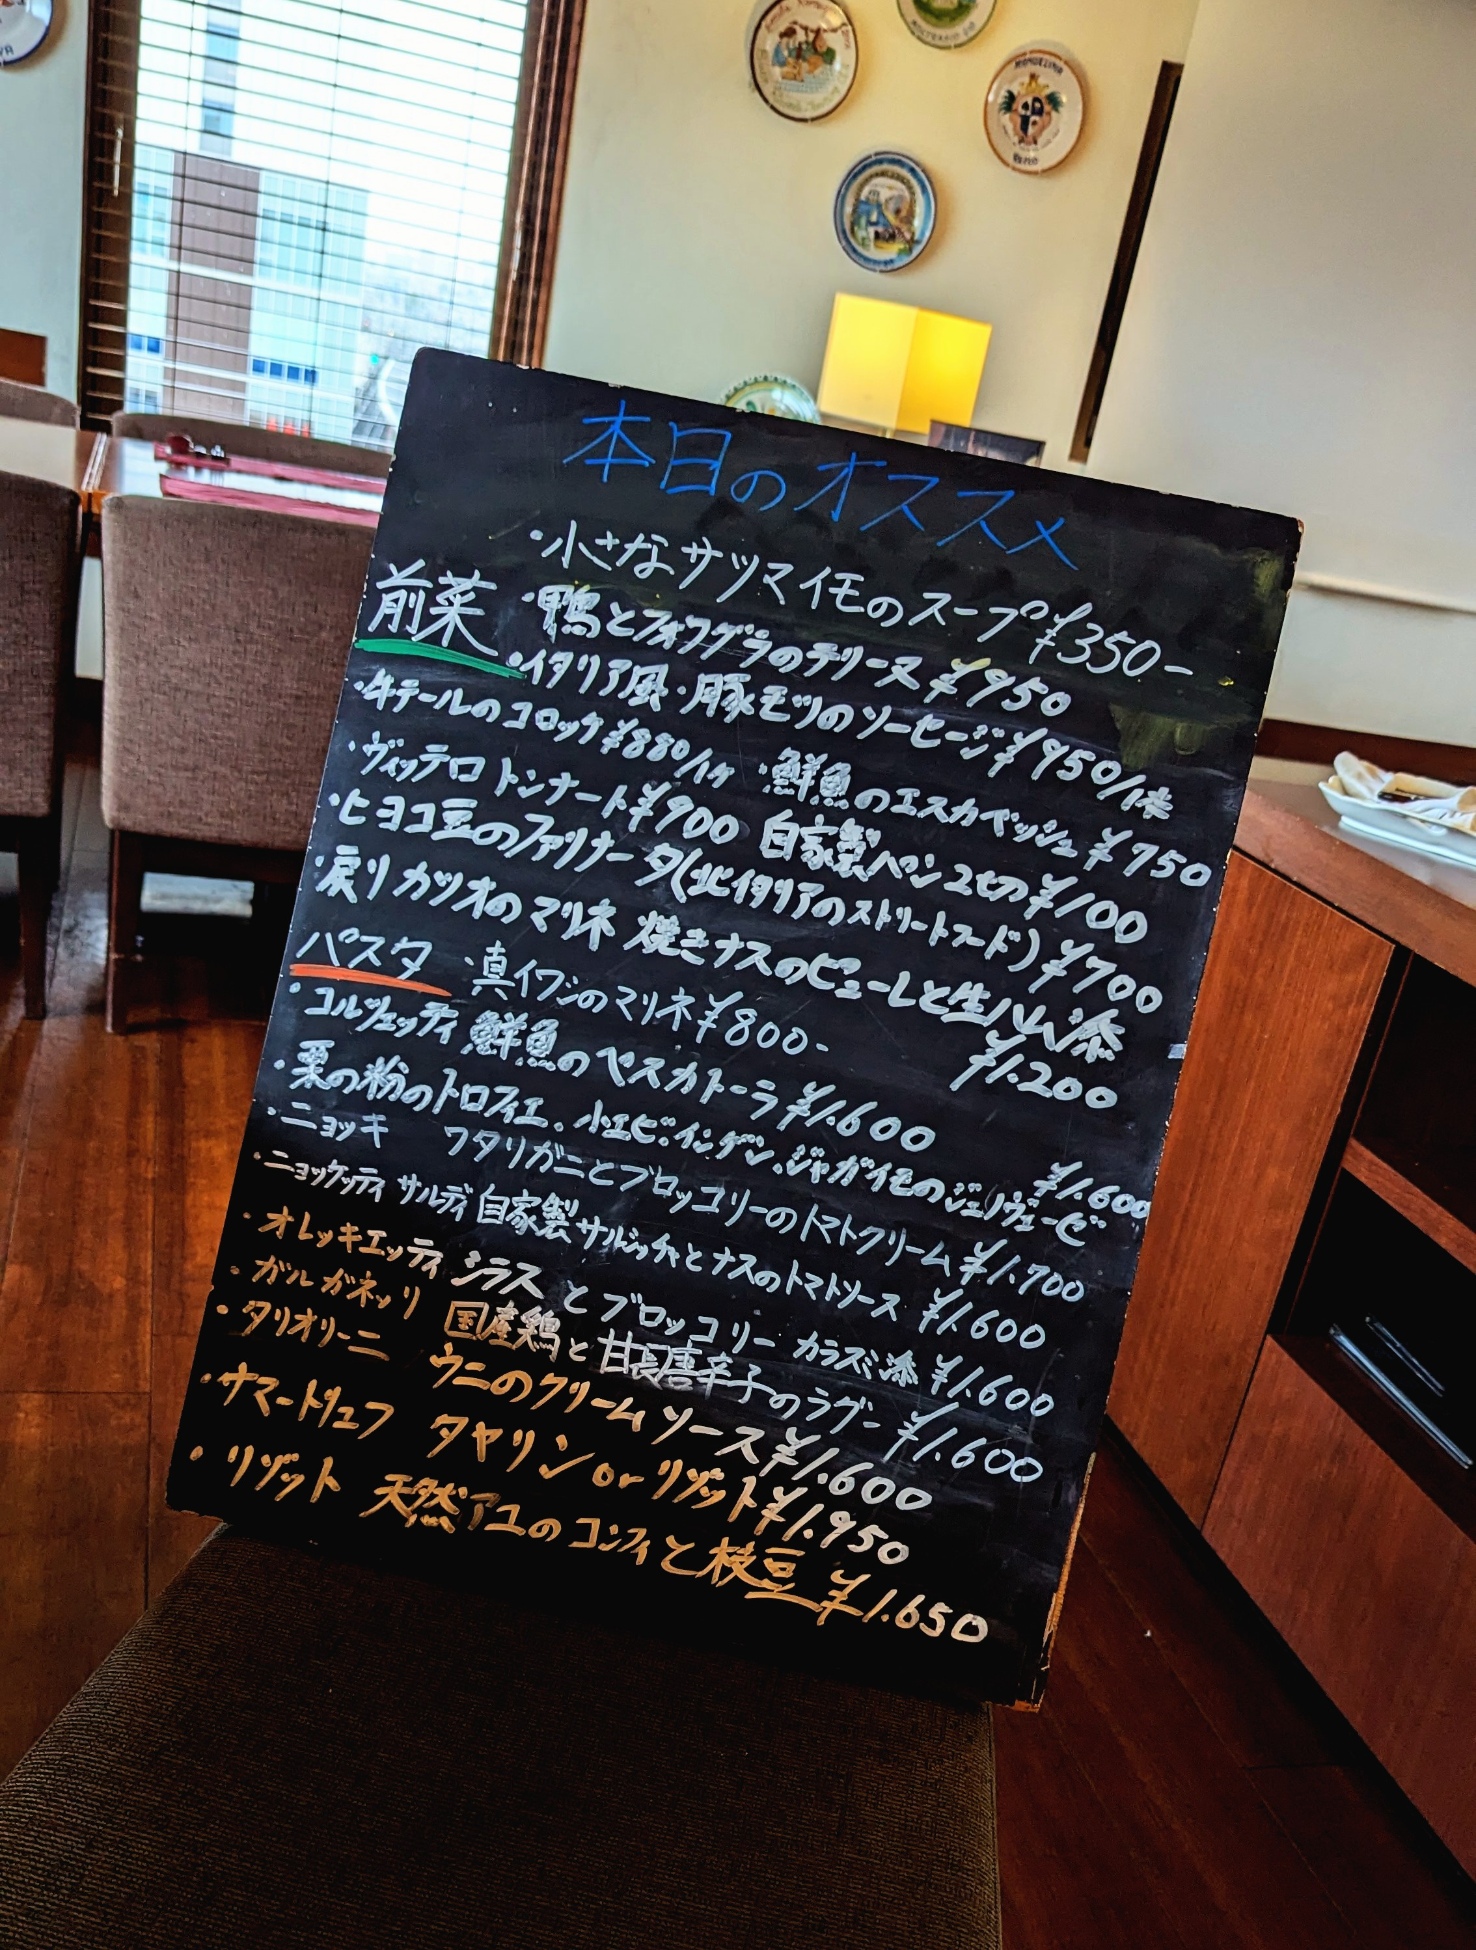 本日のオススメ
・小さなサツマイモのスープ ¥350-
前菜 ・鴨とフォワグラのテリーヌ ¥950
・イタリア風・豚モツのソーセージ ¥950/1本
牛テールのコロッケ ¥880/1ケ ・鮮魚のエスカベッシュ ¥750
・ヴィッテロ トンナート ¥900 自家製パン2七の ¥100
・ヒヨコ豆のファリナータ(北イタリアのストリートフード) ¥700
・戻りカツオのマリネ 焼きナスのピューレと生ハム添 ¥1.200
パスタ ・真イワシのマリネ ¥800-
・コルツェッティ 鮮魚のペスカトーラ ¥1.600
・栗の粉のトロフィエ、小エビ・インゲン、ジャガイモのジェノヴェーゼ ¥1.600
・ニョッキ ワタリガニとブロッコリーのトマトクリーム ¥1.700
・ニョッケッティ サルディ 自家製サルシッチャとナスのトマトソース ¥1.600
・オレッキエッティ シラスとブロッコリー カラスミ添 ¥1.600
・ガルガネッリ 国産鶏と甘長唐辛子のラグー ¥1.600
・タリオリーニ ウニのクリームソース ¥1.600
・サマートリュフ タヤリン or リゾット ¥1.950
・リゾット 天然アユのコンフィと枝豆 ¥1.650